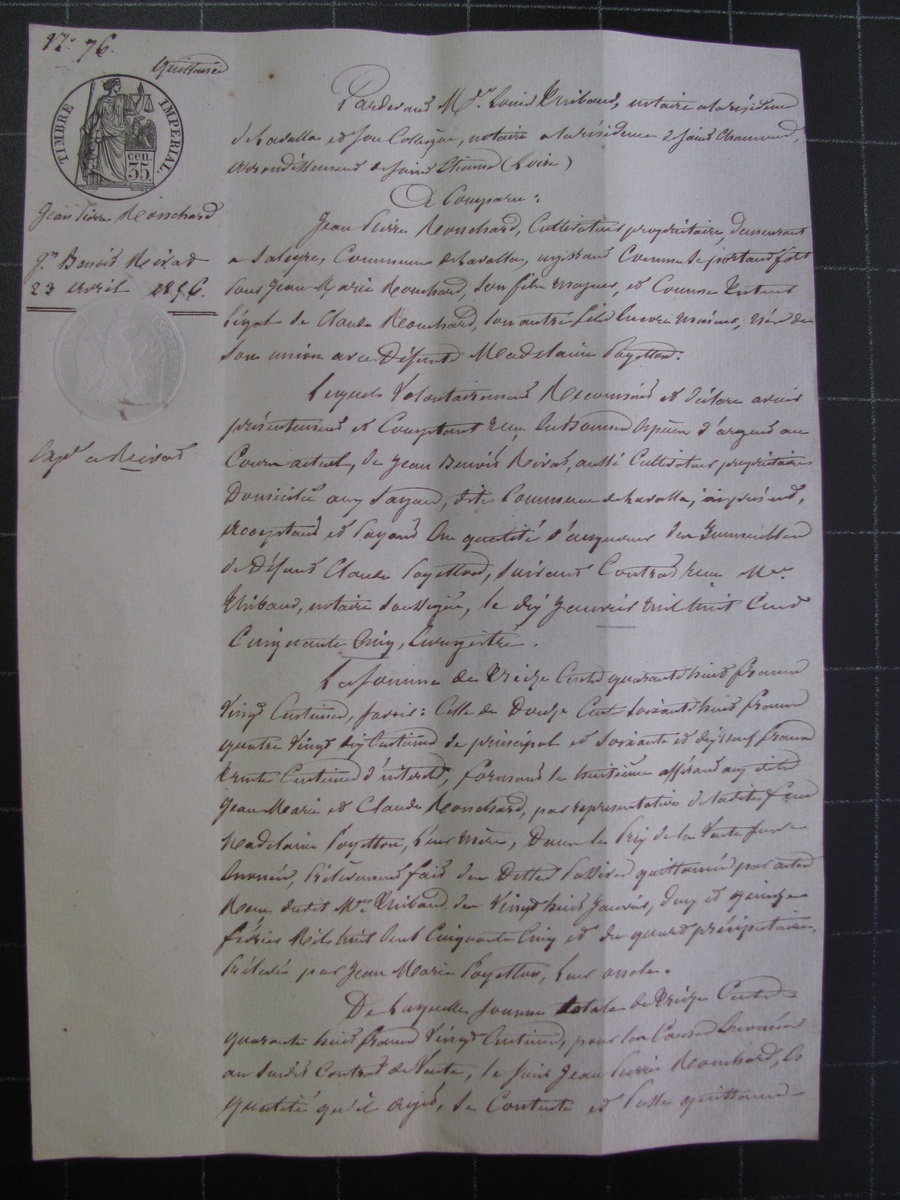 N° 76.
Quittance
TIMBRE IMPERIAL
35 cen.
Jean Pierre Monchard
à Benoit Rivat
23 avril 1856.
Exp. a Rivat
Pardevant Me. Louis Thibaud, notaire a la résidence
de Lavalla et son Collègue, notaire a la résidence de Saint Chamond,
arrondissement de Saint Etienne (Loire)
A Comparu:
Jean Pierre Monchard, Cultivateur propriétaire, demeurant
a Saleyre, Commune de Lavalla, agissant Comme se portant fort
pour Jean Marie Monchard, son fils majeur, et Comme tuteur
légal de Claude Monchard, son autre fils encore mineur, nés de
son union avec Défunte Madelaine Payetton.
Lequel Volontairement Reconnait et déclare avoir
présentement et Comptant reçu en bonnes espèces d'argent au
Cours actuel, de Jean Benoit Rivat, aussi Cultivateur propriétaire
Domicilié aux dite Commune de Lavalla, ici présent,
acceptant et Payant En qualité d'acquéreur des Immeubles
de Défunt Claude Payetton, suivant Contrat reçu Me.
Thibaud, notaire soussigné, le dix Janvier mil huit Cent
Cinquante Cinq, Enregistré.
La somme de Treize Cents quarante huit francs
Vingt Centimes, savoir: Celle de Douze Cent soixante huit francs
quatre Vingt dix Centimes de principal et soixante et dix neuf francs
trente Centimes d'intérêt, formant le huitième afférant aux dits
Jean Marie et Claude Monchard, par représentation de ladite feue
Madelaine Payetton, leur mère, Dans le Prix de la Vente sus
énoncée, prélèvement fait des Dettes Passives quittancées par actes
Reçus dudit Me. Thibaud des Vingt huit Janvier, deux et quinze
février Mil huit Cent Cinquante Cinq et du quart préciputaire,
prélevé par Jean Marie Payetton, leur oncle.
De Laquelle somme totale de Treize Cents
quarante huit francs Vingt Centimes, pour les Causes énoncées
au susdit Contrat de Vente, le sieur Jean Pierre Monchard, Es
qualité qu'il agit, se Contente et Passe quittance